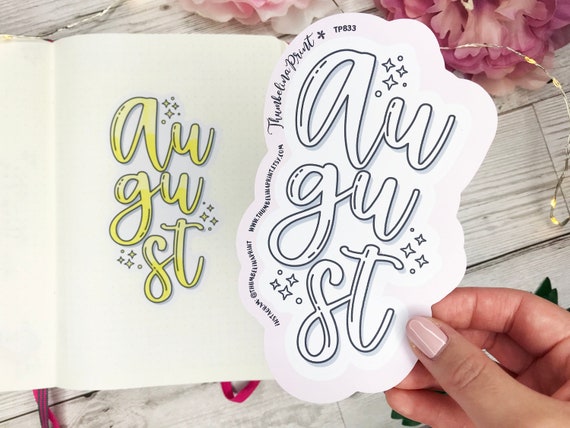 au
gu
st
Thumbelina Print
TP833
au
gu
st
WWW.THUMBELINAPRINT.ETSY.COM
INSTAGRAM @THUMBELINAPRINT